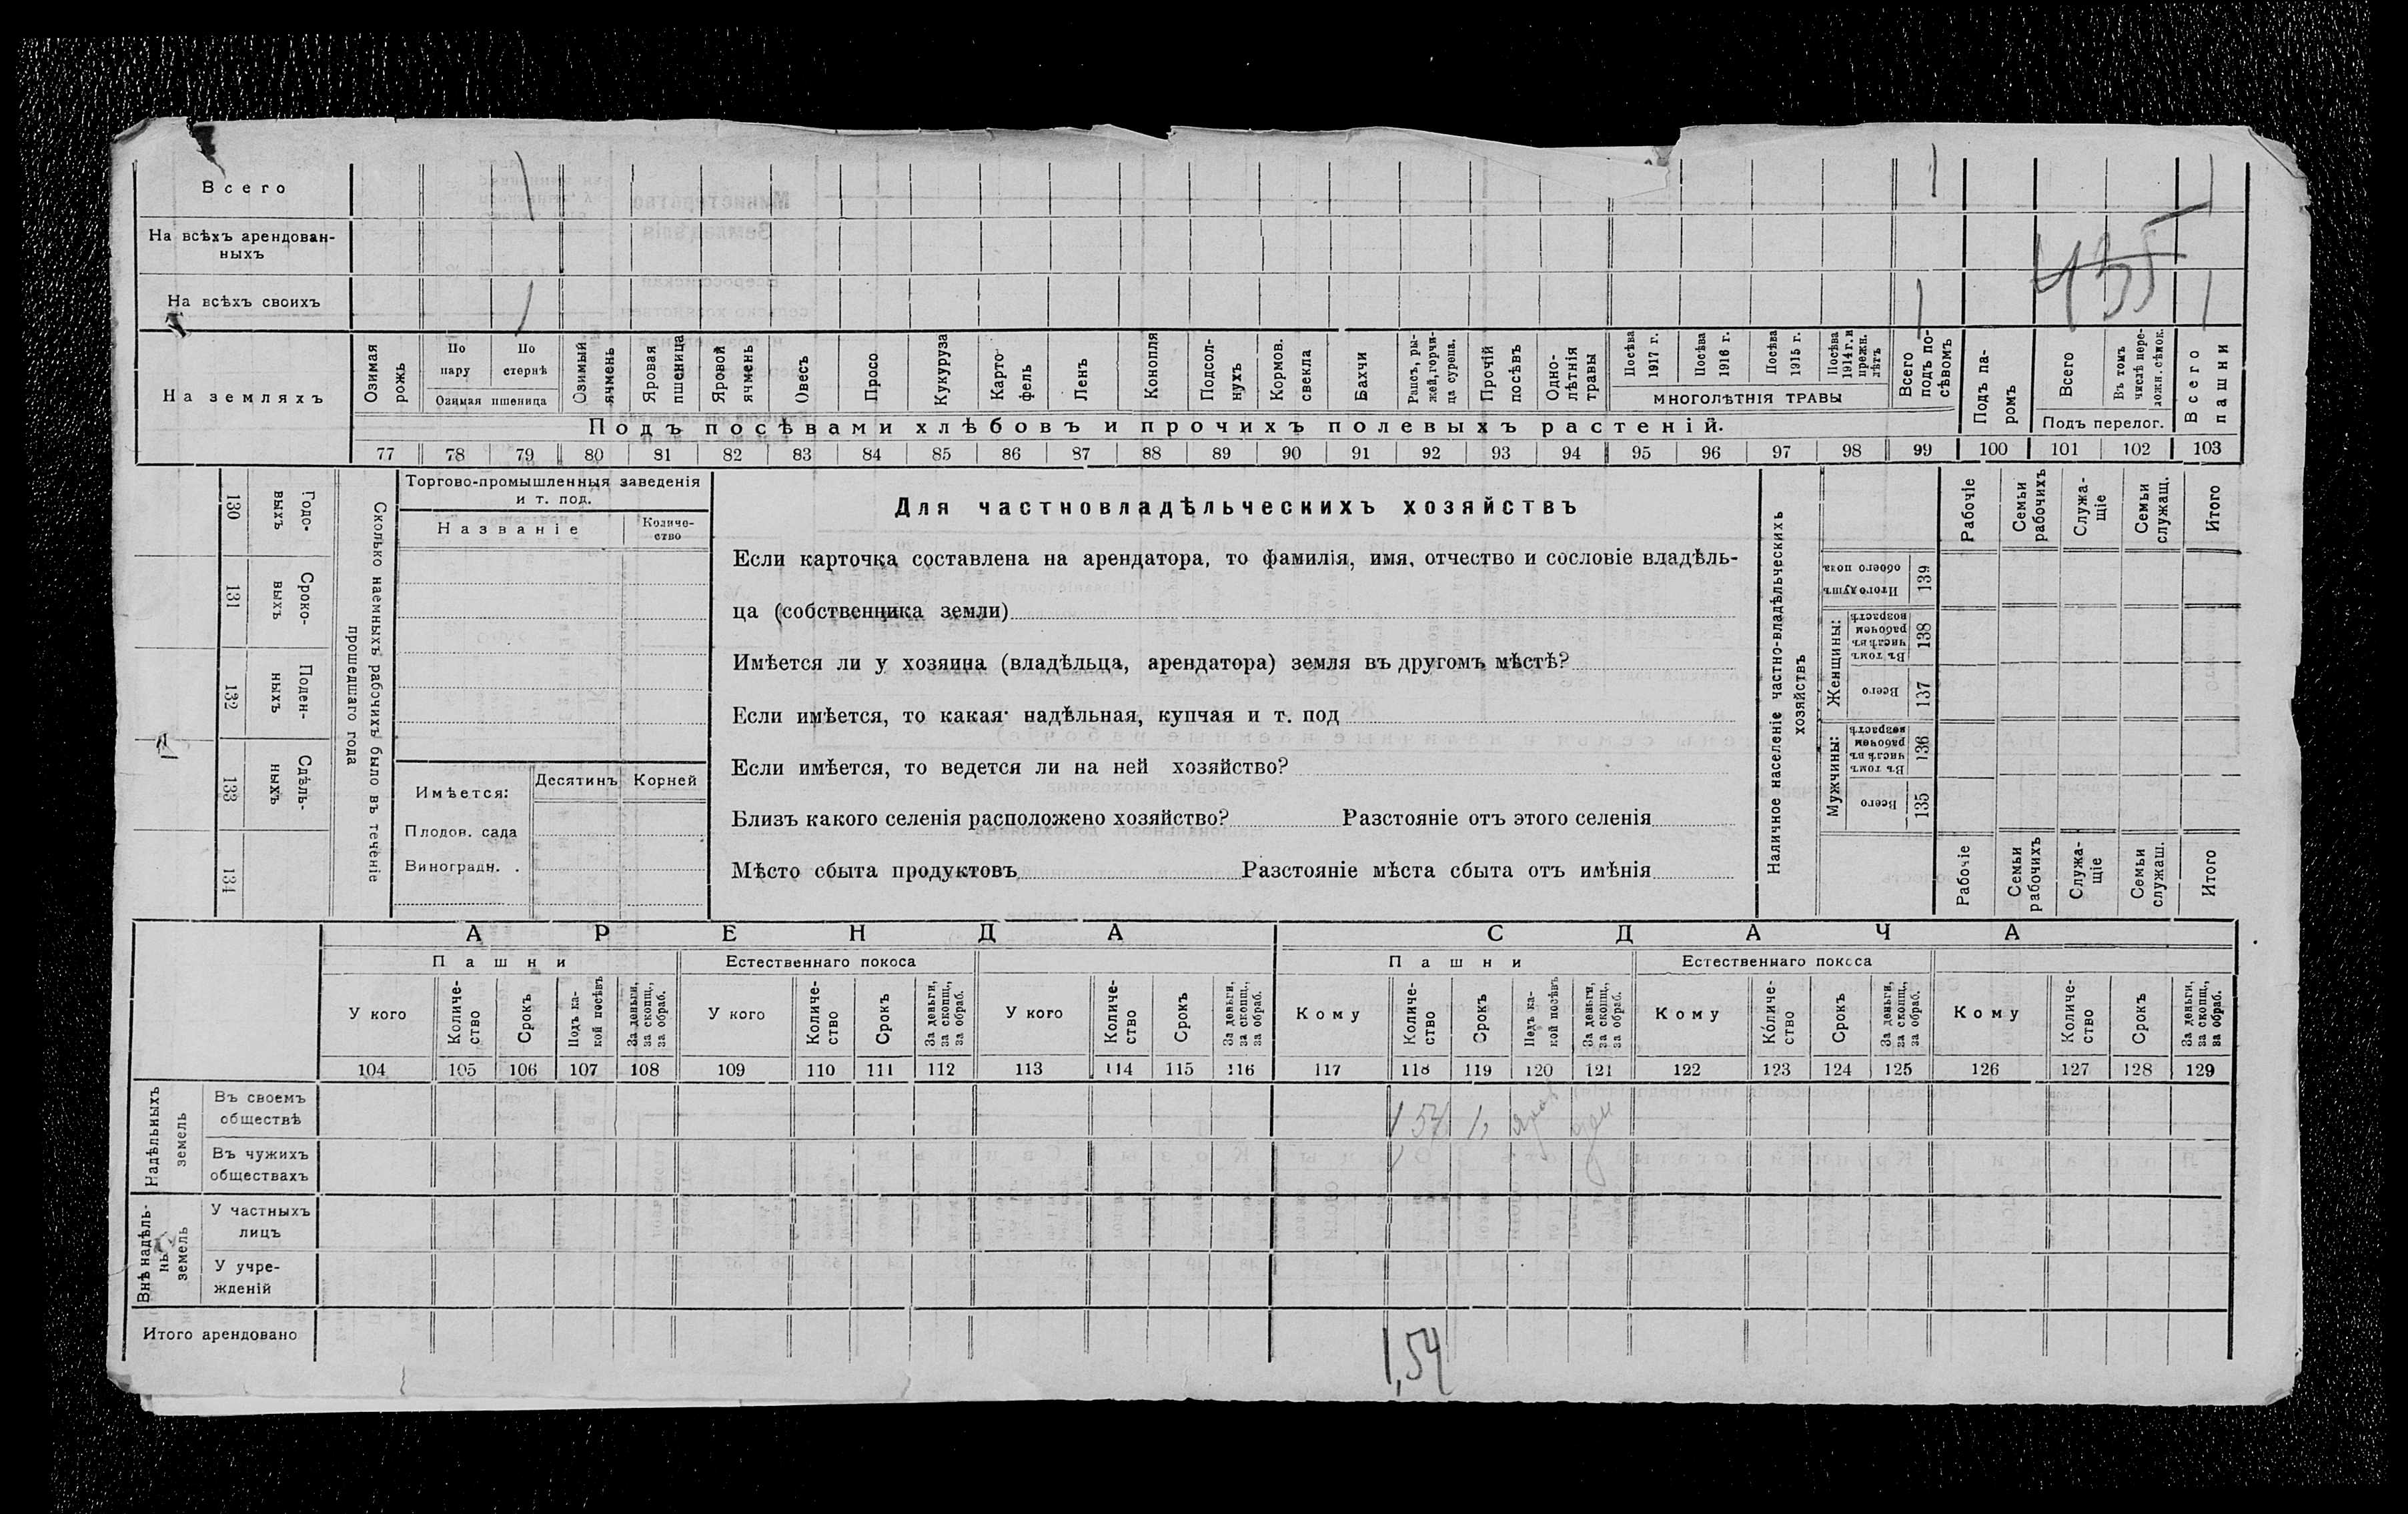 Всего 1 1 1
На всѣхъ арендован-
ныхъ
435
На всѣхъ своихъ 1 1 1
На земляхъ
Озимая рожь
По пару
По стернѣ
Озимая пшеница
Озимый ячмень
Яровая пшеница
Яровой ячмень
Овесъ
Просо
Кукуруза
Карто-
фель
Ленъ
Конопля
Подсол-
нухъ
Кормов. свекла
Бахчи
Рапсъ, ры-
жей, горчи-
ца сурепа.
Прочій посѣвъ
Одно-
лѣтнія травы
Посѣва 1917 г.
Посѣва 1916 г.
Посѣва 1915 г.
Посѣва 1914 г. и прежн. лѣтъ
МНОГОЛѢТНІЯ ТРАВЫ
Всего подъ по-
сѣвомъ
Подъ па-
ромъ
Всего
Въ томъ числѣ пере-
ложн. сѣнок.
Подъ перелог.
Всего пашни
Подъ посѣвами хлѣбовъ и прочихъ полевыхъ растеній.
77 78 79 80 81 82 83 84 85 86 87 88 89 90 91 92 93 94 95 96 97 98 99 100 101 102 103
130 Годо-
выхъ
131 Сроко-
выхъ
132 Поден-
ныхъ
133 Сдѣль-
ныхъ
134
Сколько наемныхъ рабочихъ было въ теченіе
прошедшаго года
Торгово-промышленныя заведенія
и т. под.
Названіе
Количе-
ство
Имѣется:
Десятинъ Корней
Плодов. сада
Виноградн. .
Для частновладѣльческихъ хозяйствъ
Если карточка составлена на арендатора, то фамилія, имя, отчество и сословіе владѣль-
ца (собственника земли)
Имѣется ли у хозяина (владѣльца, арендатора) земля въ другомъ мѣстѣ?
Если имѣется, то какая: надѣльная, купчая и т. под
Если имѣется, то ведется ли на ней хозяйство?
Близъ какого селенія расположено хозяйство? Разстояніе отъ этого селенія
Мѣсто сбыта продуктовъ Разстояніе мѣста сбыта отъ имѣнія
Наличное населеніе частно-владѣльческихъ
хозяйствъ
Рабочіе
Семьи рабочихъ
Служа-
щіе
Семьи служащ.
Итого
Итого душъ обоего пола 139
Женщины:
Въ томъ числѣ въ рабочемъ возрастѣ 138
Всего 137
Мужчины:
Въ томъ числѣ въ рабочемъ возрастѣ 136
Всего 135
Рабочіе
Семьи рабочихъ
Служа-
щіе
Семьи служащ.
Итого
АРЕНДА СДАЧА
Пашни Естественнаго покоса Пашни Естественнаго покоса
У кого
Количе-
ство
Срокъ
Подъ ка-
кой посѣвъ
За деньги, за скопщ., за обраб.
У кого
Количе-
ство
Срокъ
За деньги, за скопщ., за обраб.
У кого
Количе-
ство
Срокъ
За деньги, за скопщ., за обраб.
Кому
Количе-
ство
Срокъ
Подъ ка-
кой посѣвъ
За деньги, за скопщ., за обраб.
Кому
Количе-
ство
Срокъ
За деньги, за скопщ., за обраб.
Кому
Количе-
ство
Срокъ
За деньги, за скопщ., за обраб.
104 105 106 107 108 109 110 111 112 113 114 115 116 117 118 119 120 121 122 123 124 125 126 127 128 129
Надѣльныхъ
земель
Въ своемъ
обществѣ
1,54 1
Въ чужихъ
обществахъ
Внѣ надѣль-
ныхъ
земель
У частныхъ
лицъ
У учре-
жденій
Итого арендовано
1,54